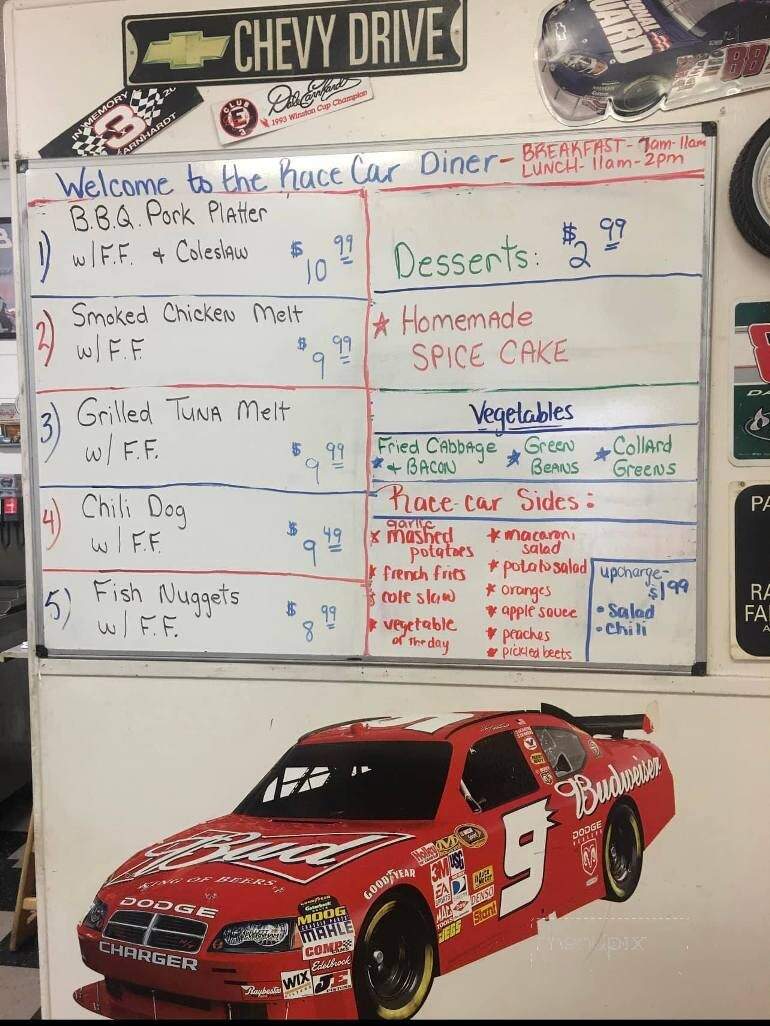 CHEVY DRIVE
IN MEMORY
3
EARNHARDT
CLUB
E
3
Dale Earnhardt
1993 Winston Cup Champion
NATIONAL
GUARD
88
Welcome to the Race Car Diner-
BREAKFAST - 7am-11am
LUNCH - 11am-2pm
1) B.B.Q. Pork Platter
w/F.F. & Coleslaw $10 99
2) Smoked Chicken Melt
w/F.F. $9 99
3) Grilled TUNA Melt
w/F.F. $9 99
4) Chili Dog
w/F.F. $9 49
5) Fish Nuggets
w/F.F. $8 99
Desserts: $2 99
★ Homemade
SPICE CAKE
Vegetables
★ Fried CABBAGE
& BACON
★ Green
BEANS
★ Collard
GREENS
Race-car Sides:
★ garlic
mashed
potatoes
★ french fries
★ cole slaw
★ vegetable
of the day
★ macaroni
salad
★ potato salad
★ oranges
★ apple sauce
★ peaches
★ pickled beets
upcharge-
$1.99
• Salad
• Chili
PA
RA
FA
Bud
KING OF BEERS
DODGE
CHARGER
GOODYEAR
Budweiser
9
DODGE
3M
EA
DENSO
MOOG
MAHLE
COMP
Edelbrock
Raybestos
WIX
JE
menupix